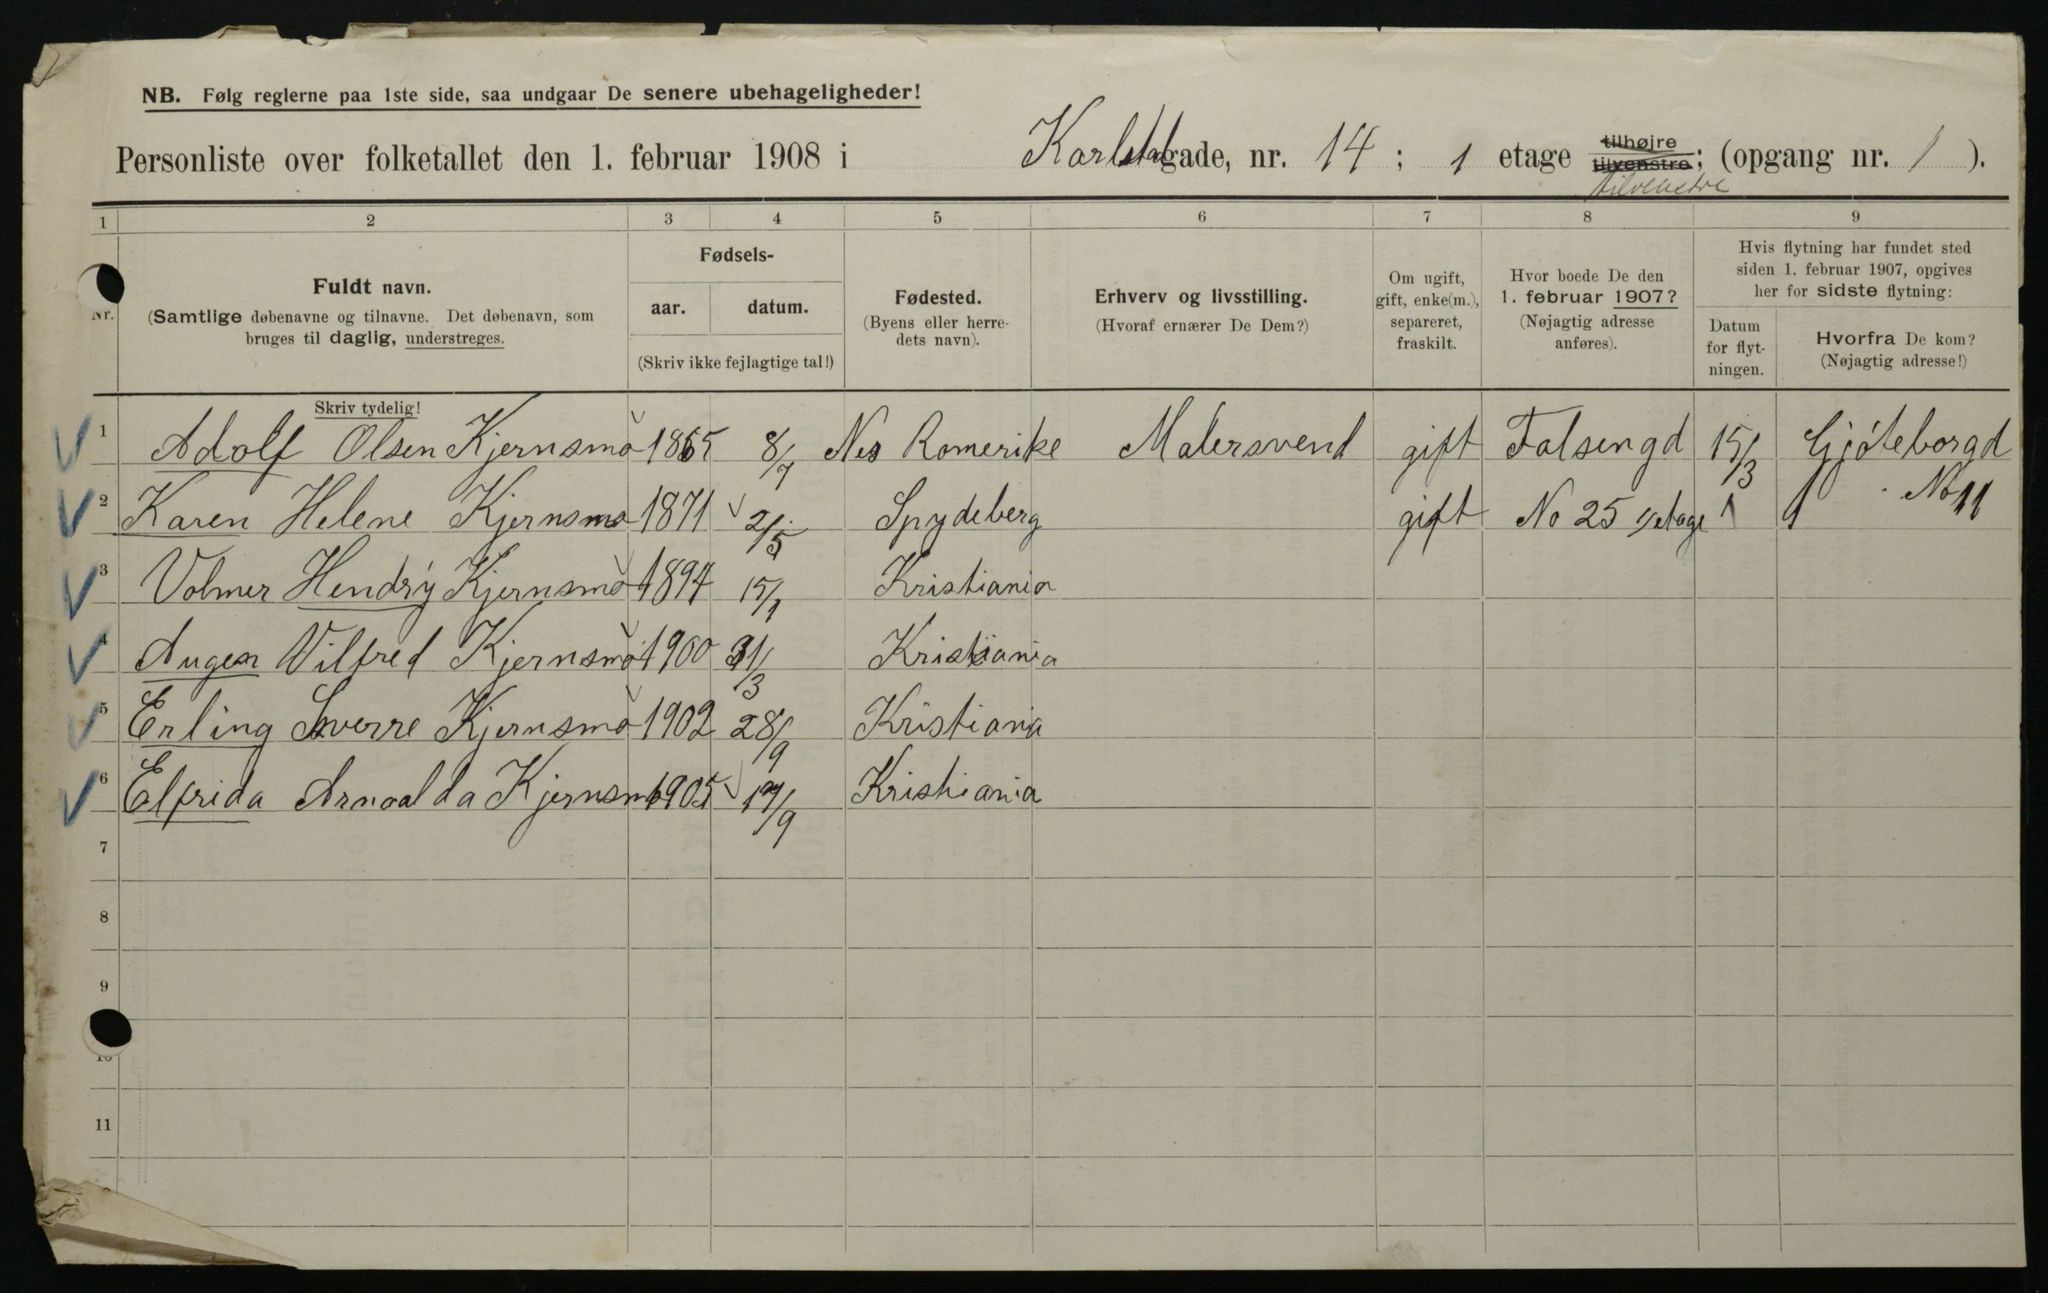 NB. Følg reglerne paa 1ste side, saa undgaar De senere ubehageligheder!
Personliste over folketallet den 1. februar 1908 i Karlstadgade, nr. 14 ; 1 etage tilhøjre tilvenstre; (opgang nr. 1 ).
tilvenstre
1 2 3 4 5 6 7 8 9
Nr.
Fuldt navn.
(Samtlige døbenavne og tilnavne. Det døbenavn, som
bruges til daglig, understreges.
Skriv tydelig!
Fødsels-
aar. datum.
(Skriv ikke fejlagtige tal!)
Fødested.
(Byens eller herre-
dets navn).
Erhverv og livsstilling.
(Hvoraf ernærer De Dem?)
Om ugift,
gift, enke(m.),
separeret,
fraskilt.
Hvor boede De den
1. februar 1907?
(Nøjagtig adresse
anføres).
Hvis flytning har fundet sted
siden 1. februar 1907, opgives
her for sidste flytning:
Datum
for flyt-
ningen.
Hvorfra De kom?
(Nøjagtig adresse!)
1 Adolf Olsen Kjernsmo 1865 8/7 Nes Romerike Malersvend gift Falsengd 15/3 Gjøteborgd
2 Karen Helene Kjernsmo 1871 2/5 Spydeberg gift No 25 1/etage No 11
3 Volmer Hendry Kjernsmo 1897 15/1 Kristiania
4 Augen Vilfred Kjernsmo 1900 31/3 Kristiania
5 Erling Sverre Kjernsmo 1902 28/9 Kristiania
6 Elfrida Arnoalda Kjernsmo 1905 19/9 Kristiania
7
8
9
10
11